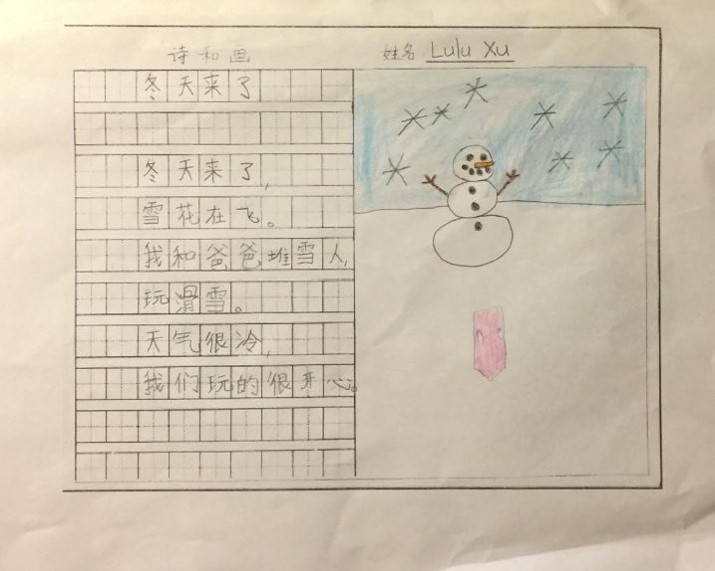 诗和画
姓名 Lulu Xu
冬天来了
冬天来了，
雪花在飞。
我和爸爸堆雪人，
玩滑雪。
天气很冷，
我们玩的很开心。